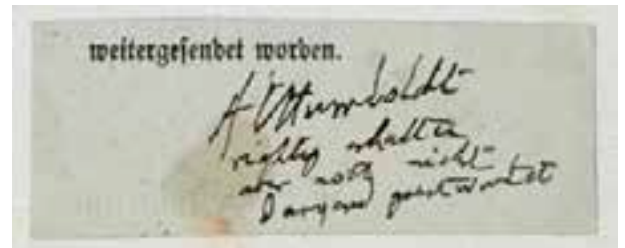 weitergesendet worden.
A v Humboldt
richtig erhalten
aber noch nicht
geantwortet